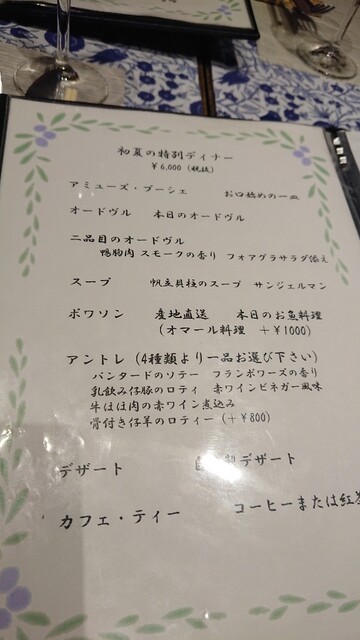 初夏の特別ディナー
￥6,000（税抜）
アミューズ・ブーシェ　お口始めの一皿
オードヴル　本日のオードヴル
二品目のオードヴル
鴨胸肉 スモークの香り フォアグラサラダ添え
スープ　帆立貝柱のスープ サンジェルマン
ポワソン　産地直送　本日のお魚料理
（オマール料理　＋￥1000）
アントレ（4種類より一品お選び下さい）
パンタードのソテー　フランボワーズの香り
乳飲み仔豚のロティ　赤ワインビネガー風味
牛ほほ肉の赤ワイン煮込み
骨付き仔羊のロティー（＋￥800）
デザート　デザート
カフェ・ティー　コーヒーまたは紅茶